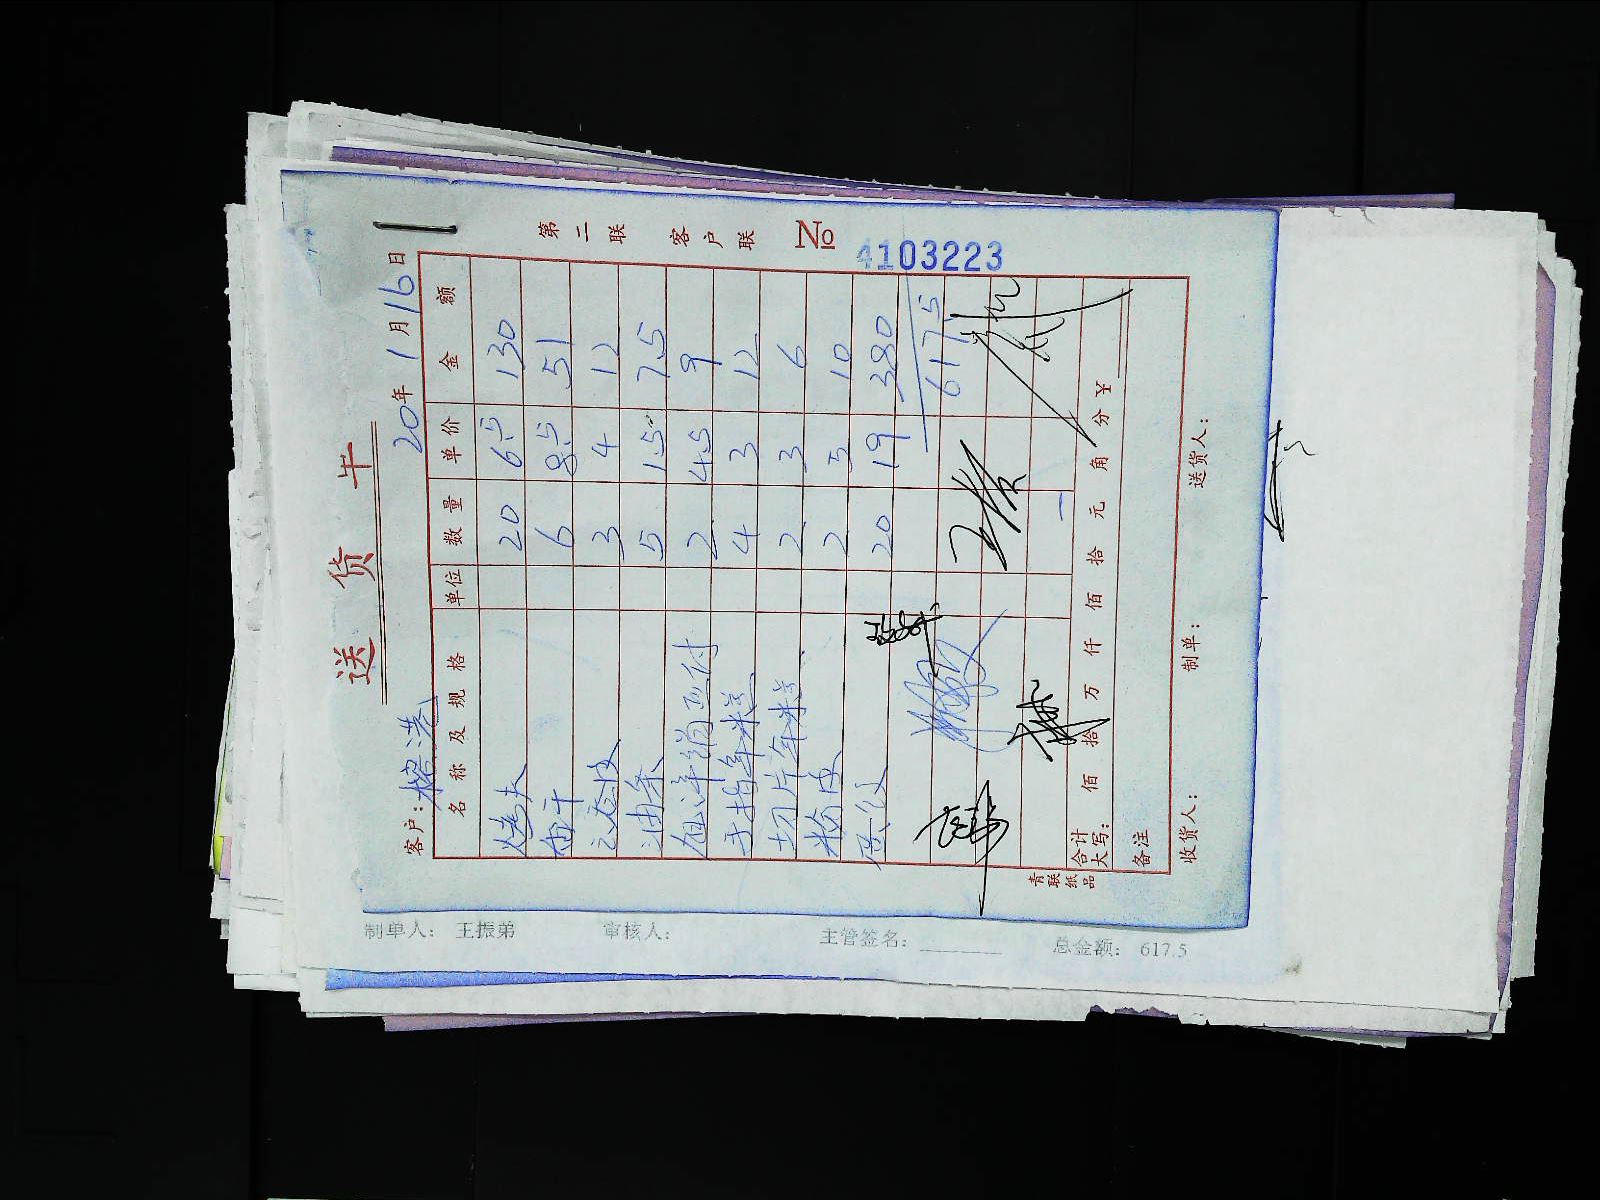 送货单
第二联 客户联 № 4103223
客户: 榕港 20年1月16日
名称及规格 单位 数量 单价 金额
烤夫 20 6.5 130
香干 6 8.5 51
3 4 12
油条 5 1.5 7.5
2 4.5 9
手指年糕 4 3 12
切片年糕 2 3 6
粉皮 2 5 10
20 19 380
617.5
合计大写: 佰 拾 万 仟 佰 拾 元 角 分 ¥
备注
收货人: 制单: 送货人:
青联纸品
制单人: 王振弟 审核人: 主管签名: 总金额: 617.5